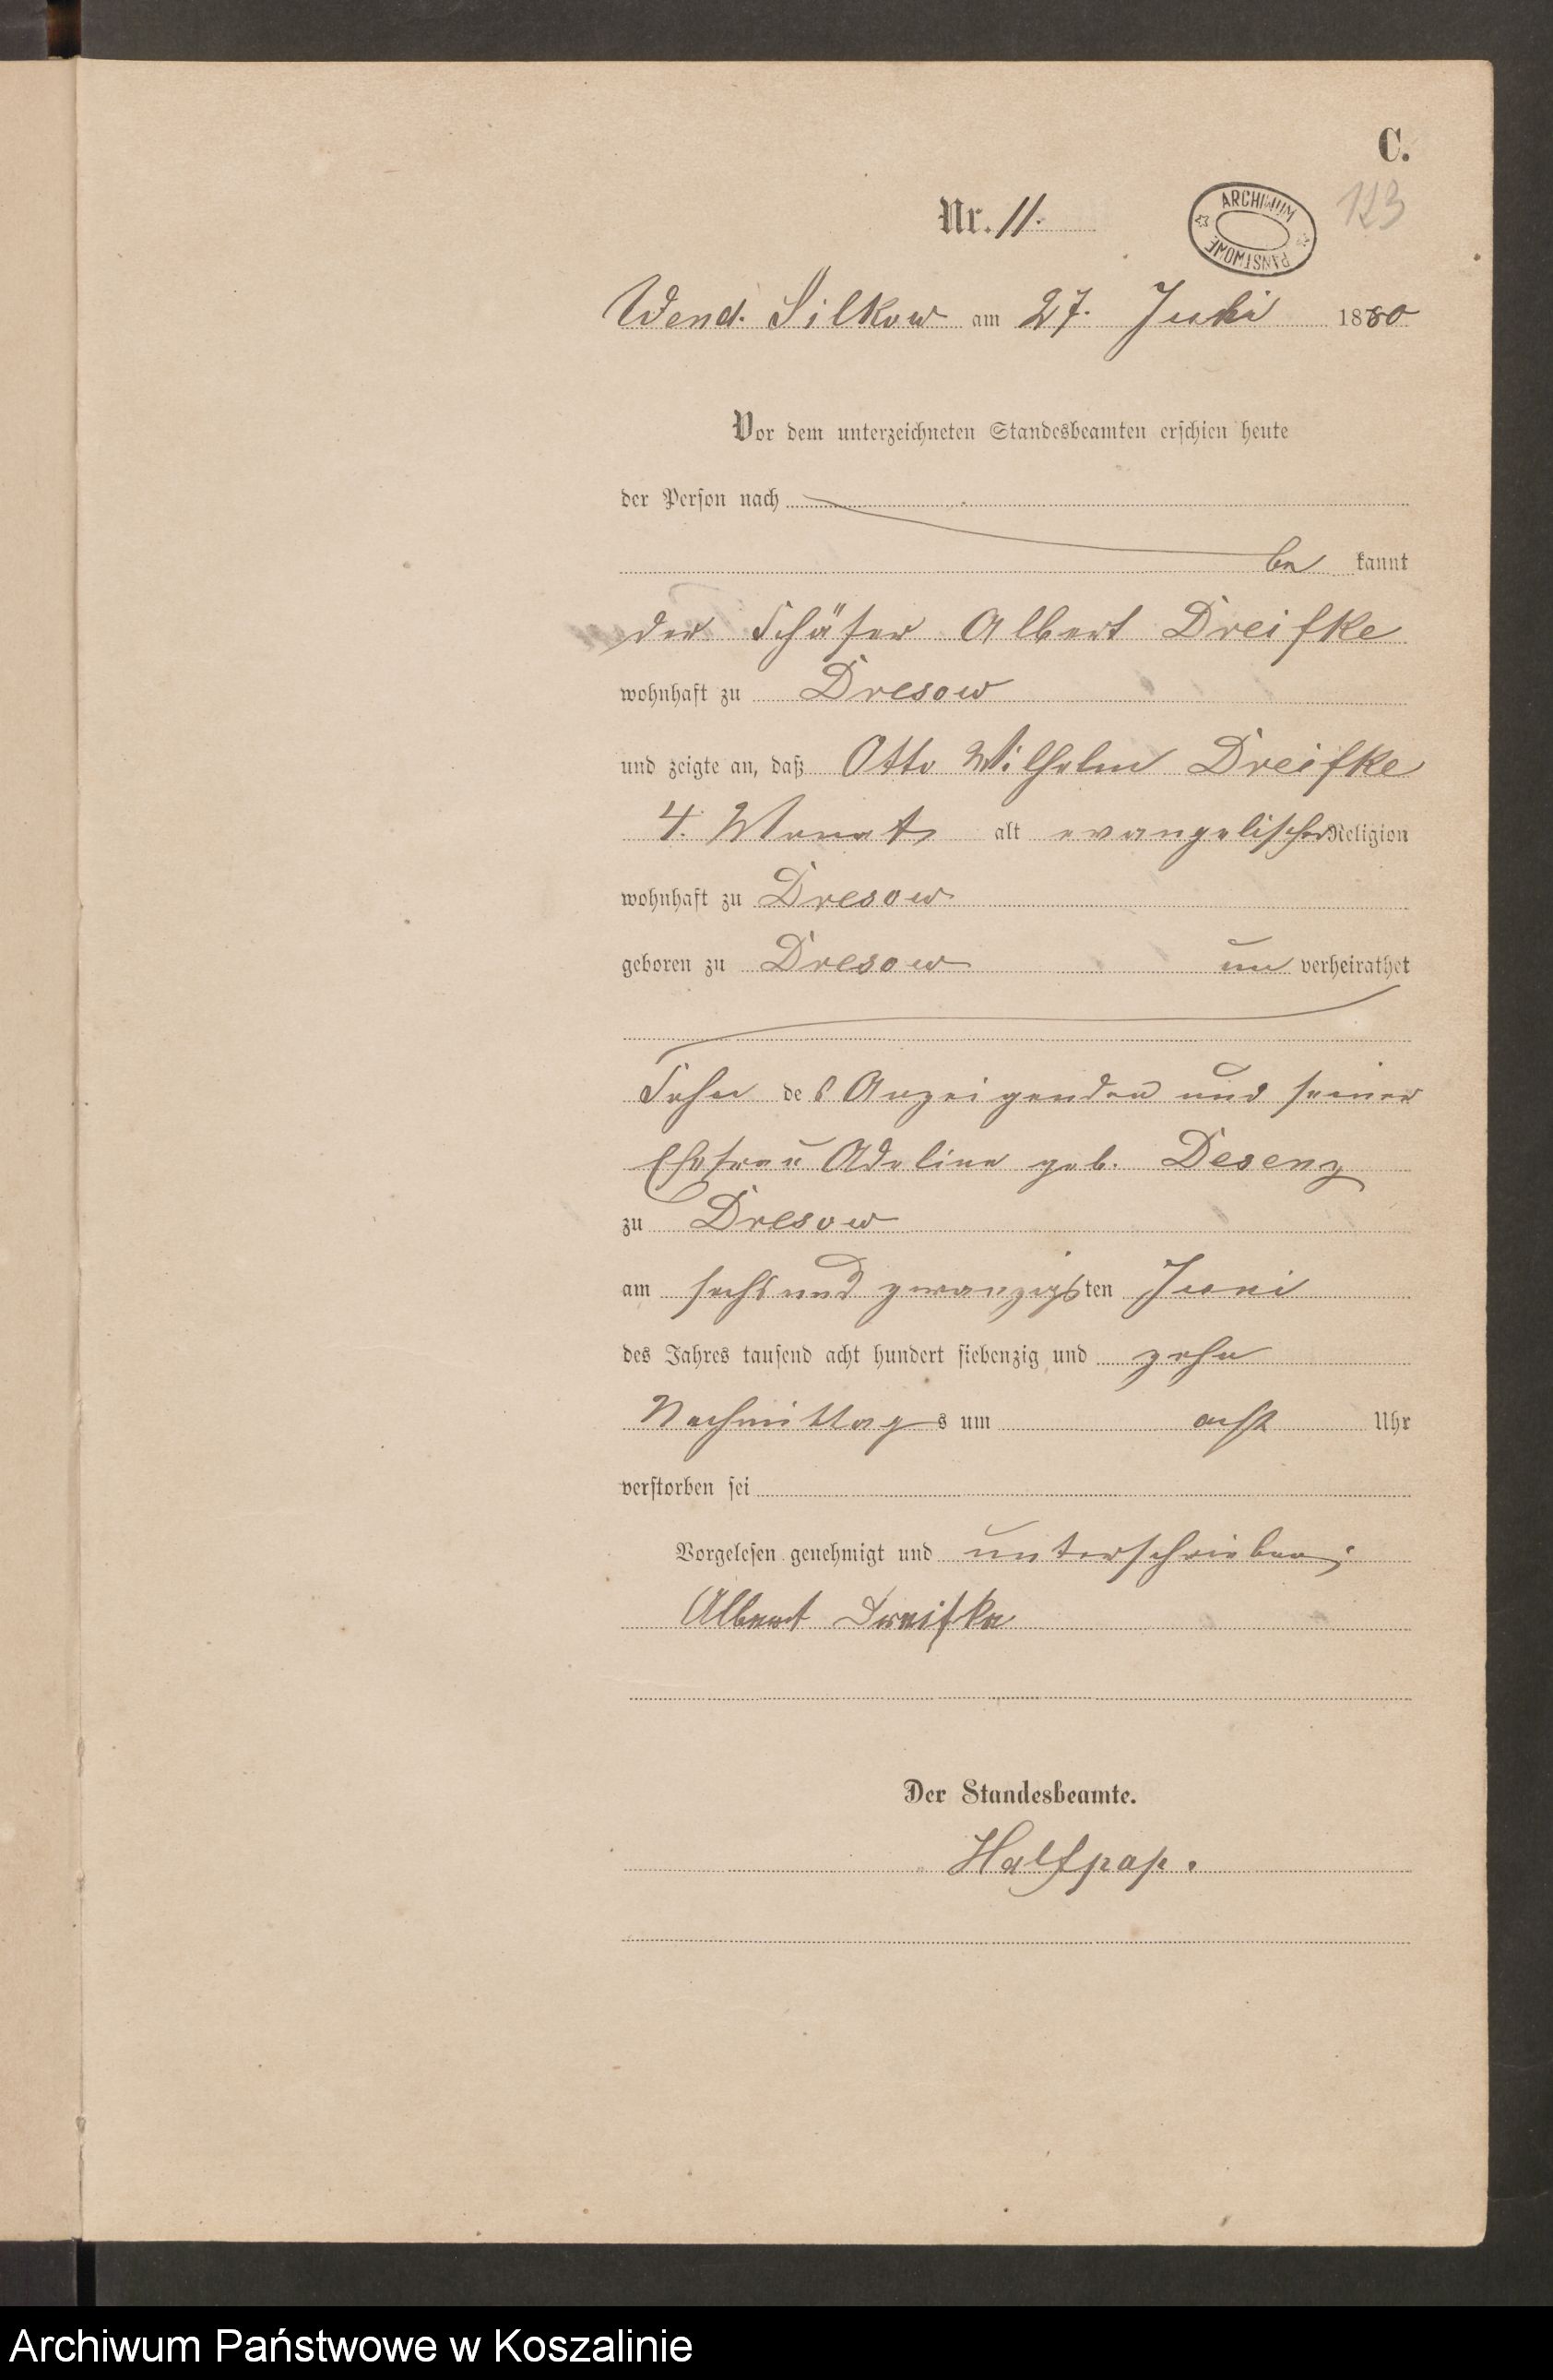 C.
Nr. 11.
ARCHIWUM PAŃSTWOWE
123
Wend. Silkow am 27. Juni 1880
Vor dem unterzeichneten Standesbeamten erschien heute
der Person nach
be kannt
der Schäfer Albert Dreifke
wohnhaft zu Dresow
und zeigte an, daß Otto Wilhelm Dreifke
4. Monat alt evangelischer Religion
wohnhaft zu Dresow
geboren zu Dresow un verheirathet
Sohn des Anzeigenden und seiner
Ehefrau Adeline geb. Desenz
zu Dresow
am sechs und zwanzigsten Juni
des Jahres tausend acht hundert siebenzig und zehn
Nachmittags um acht Uhr
verstorben sei
Vorgelesen genehmigt und unterschrieben;
Albert Dreifke
Der Standesbeamte.
Halfpap.
Archiwum Państwowe w Koszalinie